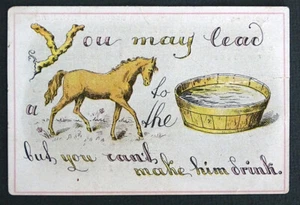 You may lead
a to
the
but you can't
make him drink.